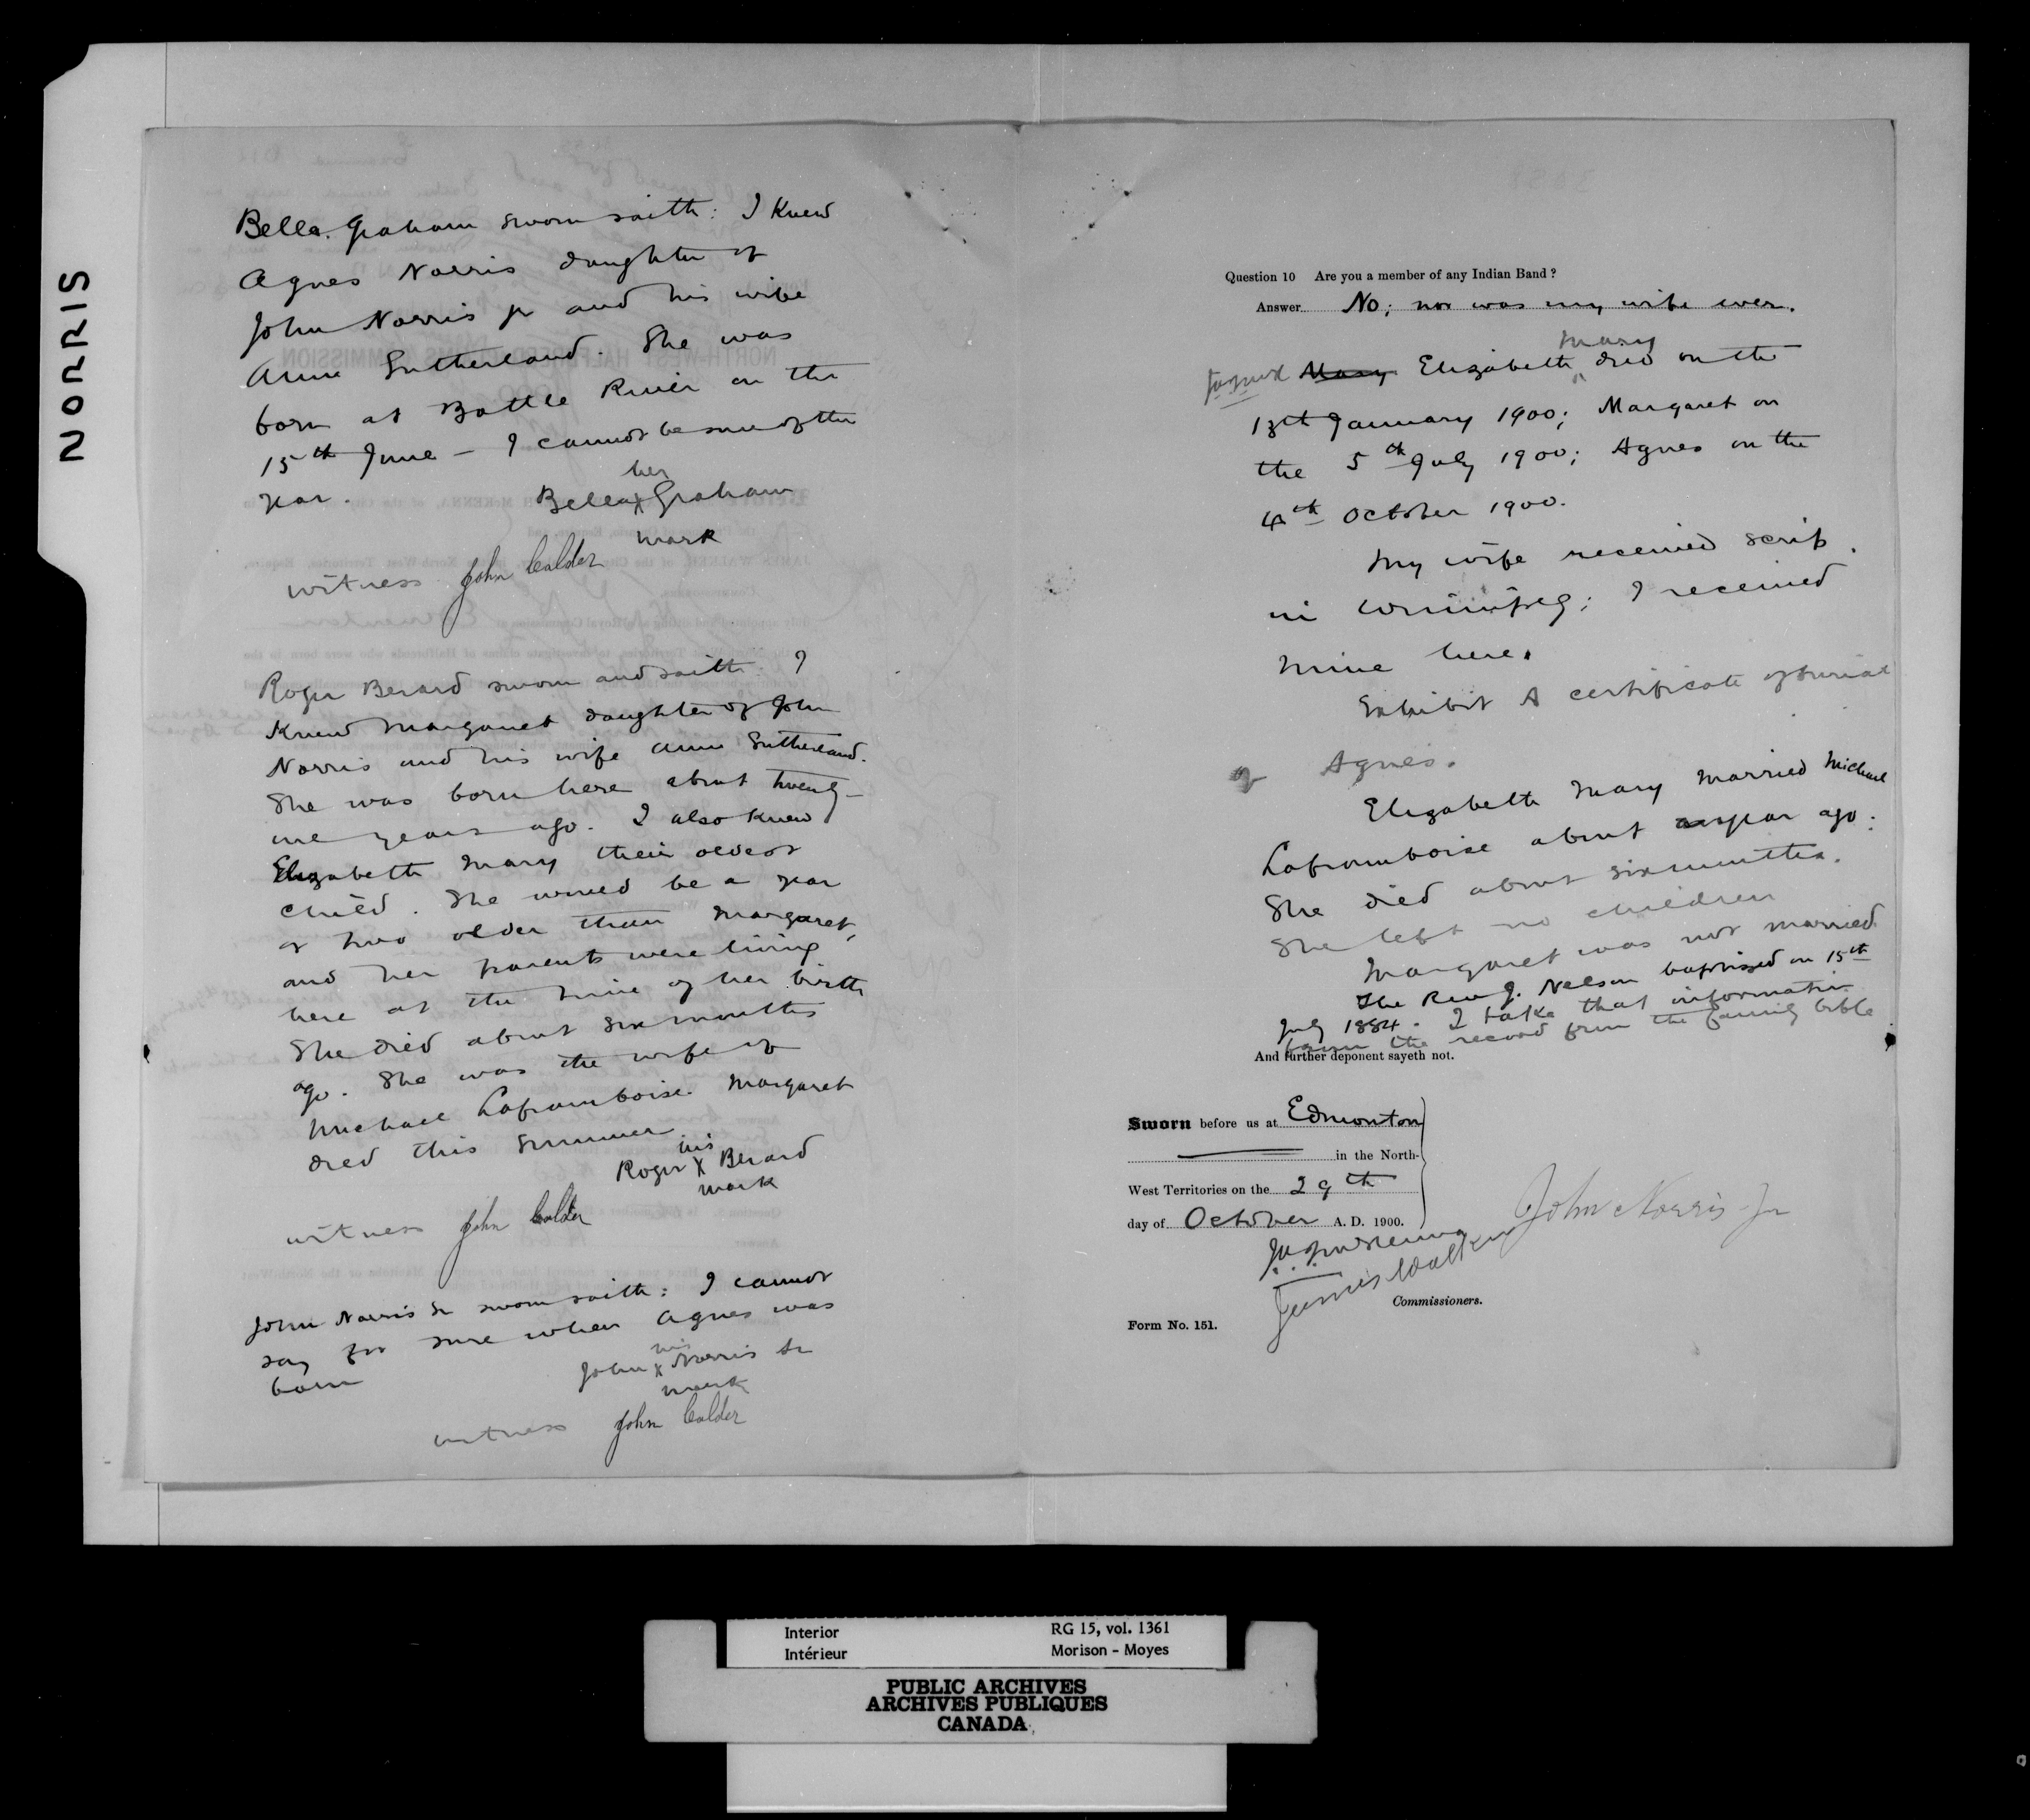 NORRIS
Bella Graham sworn saith: I knew
Agnes Norris daughter of
John Norris jr and his wife
Anne Sutherland. She was
born at Battle River on the
15th June - I cannot be sure of the
year.
her
Bella X Graham
mark
witness John Calder
Roger Berard sworn and saith: I
knew Margaret daughter of John
Norris and his wife Anne Sutherland.
She was born here about twenty-
one years ago. I also knew
Elizabeth Mary their oldest
child. She would be a year
or two older than Margaret,
and her parents were living
here at the time of her birth
She died about six months
ago. She was the wife of
Michael Laframboise. Margaret
died this summer
his
Roger X Berard
mark
witness John Calder
John Norris Sr sworn saith: I cannot
say for sure when Agnes was
born
his
John X Norris Sr
mark
witness John Calder
Question 10 Are you a member of any Indian Band?
Answer No; nor was my wife ever.
Mary
Mary Elizabeth ^ died on the
13th January 1900; Margaret on
the 5th July 1900; Agnes on the
4th October 1900.
My wife received scrip
in Winnipeg; I received
mine here.
Exhibit A certificate of burial
of Agnes.
Elizabeth Mary married Michael
Laframboise about a year ago.
She died about six months.
She left no children
Margaret was not married.
The Rev J. Nelson baptized on 15th
July 1884. I take that information
from the record from the family bible
And further deponent sayeth not.
Sworn before us at Edmonton
in the North-
West Territories on the 29th
day of October A. D. 1900.
John Norris Jr
James Walker
Commissioners.
Form No. 151.
Interior RG 15, vol. 1361
Intérieur Morison - Moyes
PUBLIC ARCHIVES
ARCHIVES PUBLIQUES
CANADA